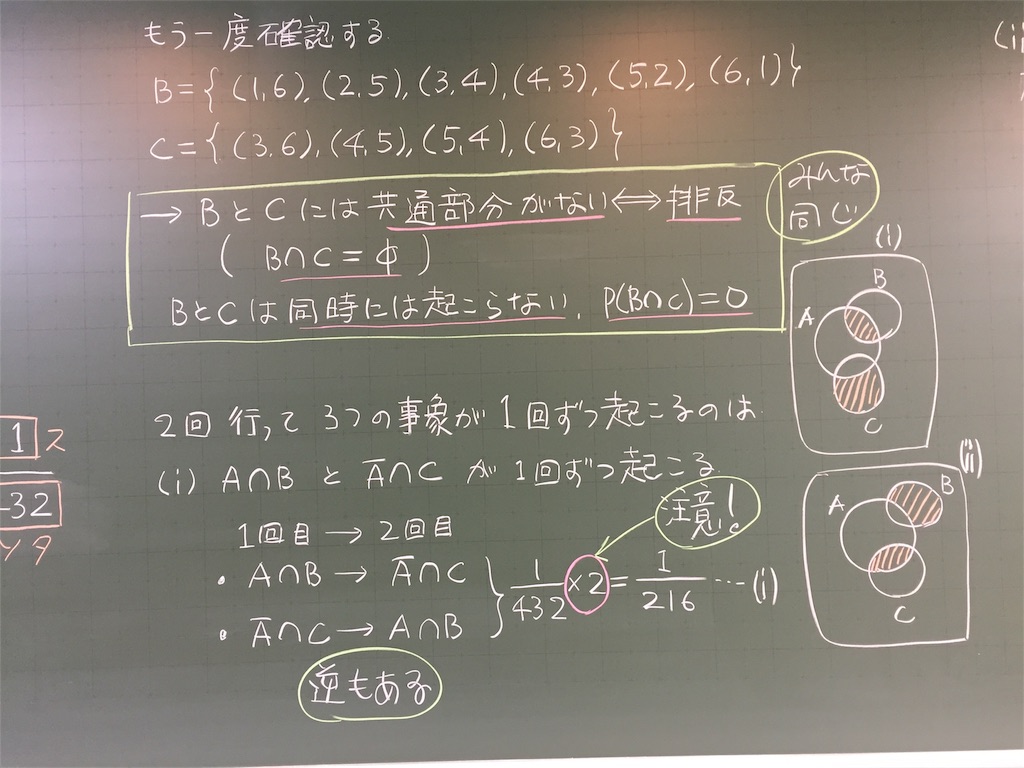 もう一度確認する
B={(1,6),(2,5),(3,4),(4,3),(5,2),(6,1)}
C={(3,6),(4,5),(5,4),(6,3)}
→ BとCには共通部分がない⇔排反
(B∩C=φ)
BとCは同時には起こらない. P(B∩C)=0
みんな
同じ
(i)
A
B
C
2回行って3つの事象が1回ずつ起こるのは
(i) A∩BとA̅∩Cが1回ずつ起こる
1回目→2回目
・A∩B→A̅∩C
・A̅∩C→A∩B
} 1/432 ×2 = 1/216 … (i)
注意!
逆もある
(ii)
A
B
C
1 ス
432
(i